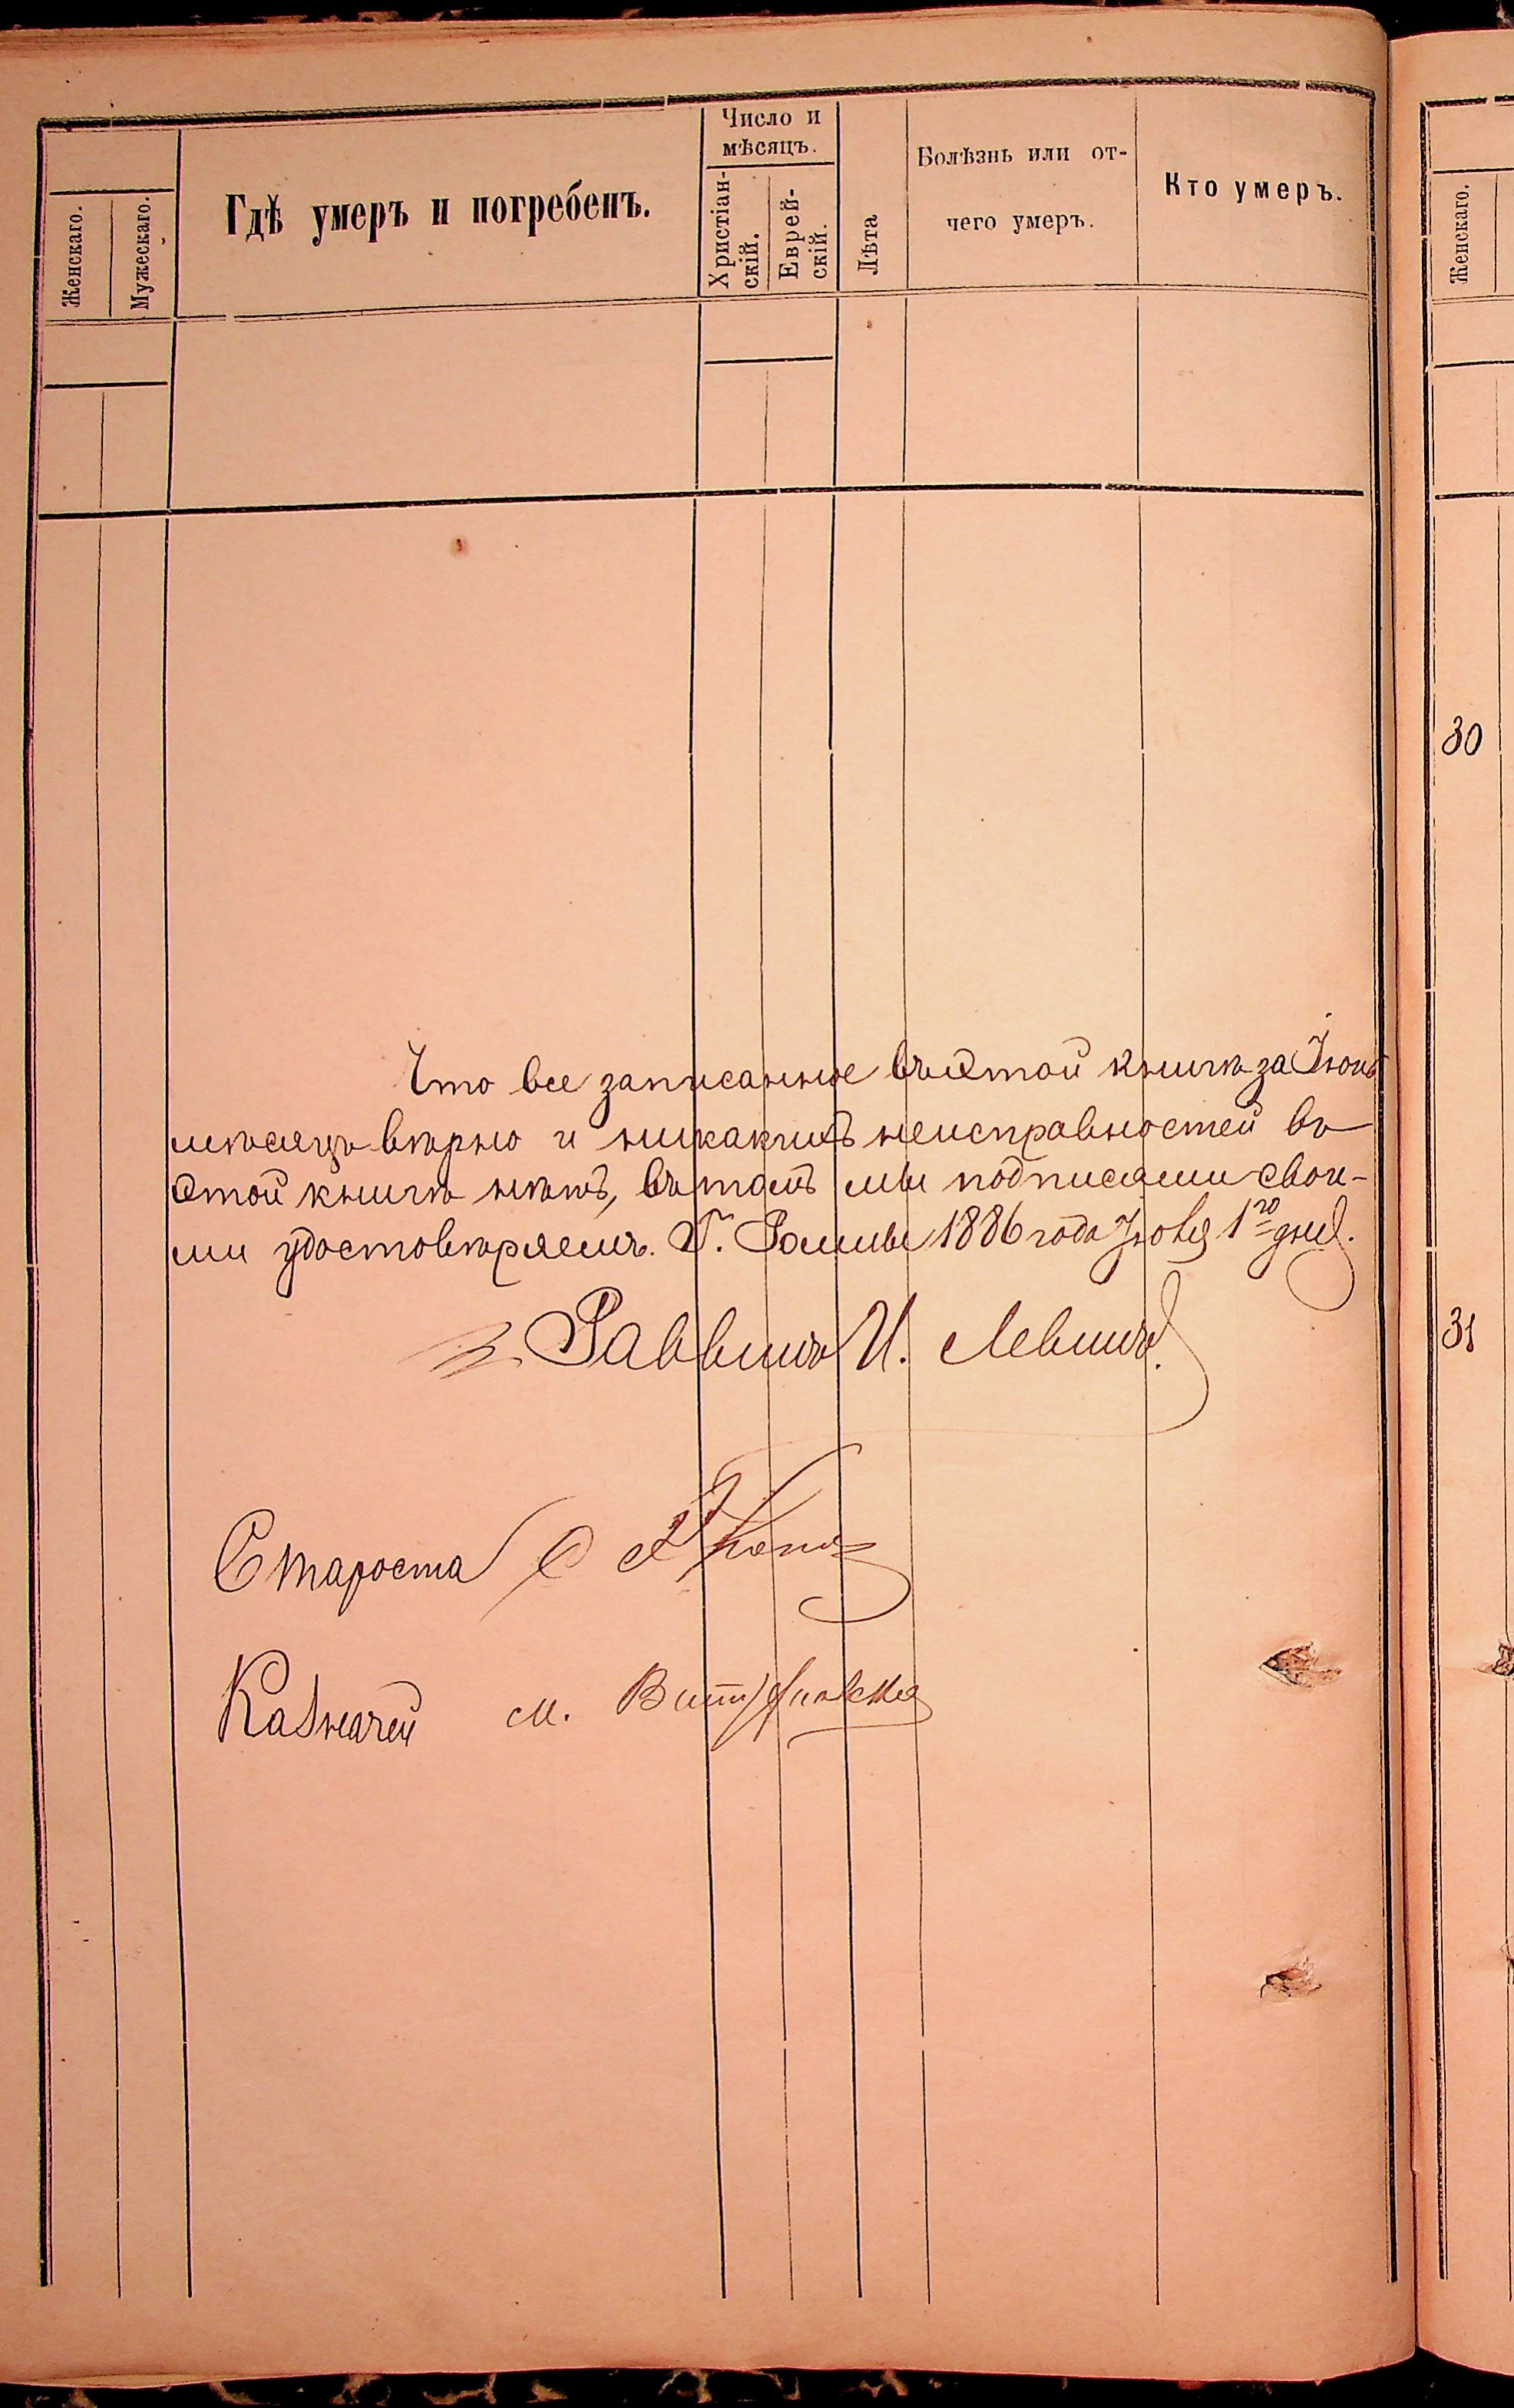 Женскаго.
Мужескаго.
Гдѣ умеръ и погребенъ.
Число и
мѣсяцъ.
Христіан-
скій.
Еврей-
скій.
Лѣта
Болѣзнь или от-
чего умеръ.
Кто умеръ.
Что все записанное въ этой книгѣ за Іюнь
мѣсяцъ вѣрно и никакихъ неисправностей въ
этой книгѣ нѣтъ, въ томъ мы подписями свои-
ми удостовѣряемъ. Г. Ромны 1886 года 1го дня.
Раввинъ И. Левинъ.
Староста
Казначей М.
Женскаго.
30
31